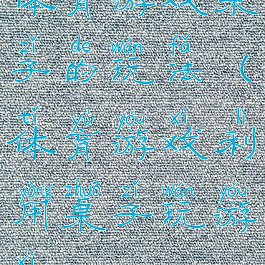 体育游戏桌
zǐ de wán fǎ
子的玩法（
tǐ yù yóu xì lì
体育游戏利
yòng zhuō zǐ wán yóu
用桌子玩游